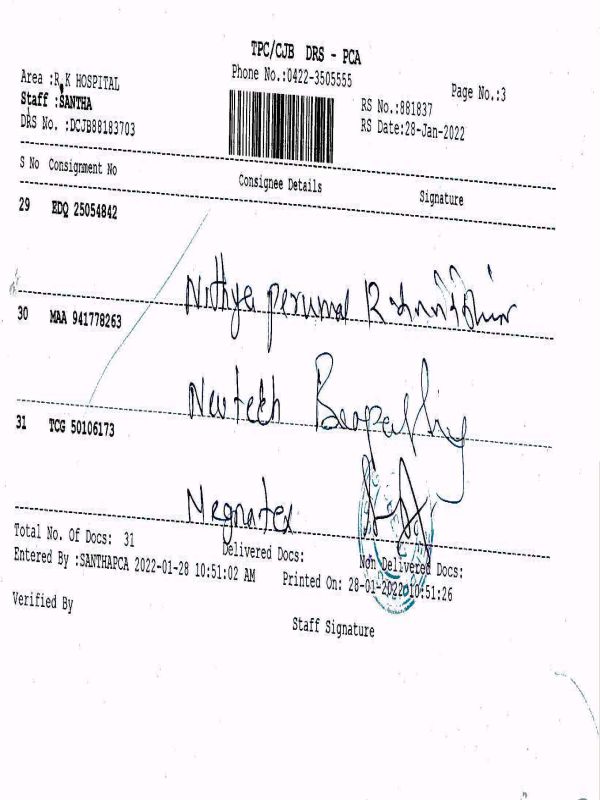 TPC/CJB DRS - PCA
Area :R.K HOSPITAL
Phone No.:0422-3505555
Page No.:3
Staff :SANTHA
RS No.:881837
DRS No. :DCJB88183703
RS Date:28-Jan-2022
S No Consignment No Consignee Details Signature
29 EDQ 25054842
Nithya perumal
30 MAA 941778263
Newtech
31 TCG 50106173
Negnatex
Total No. Of Docs: 31 Delivered Docs: Non Delivered Docs:
Entered By :SANTHAPCA 2022-01-28 10:51:02 AM Printed On: 28-01-2022 10:51:26
Verified By
Staff Signature